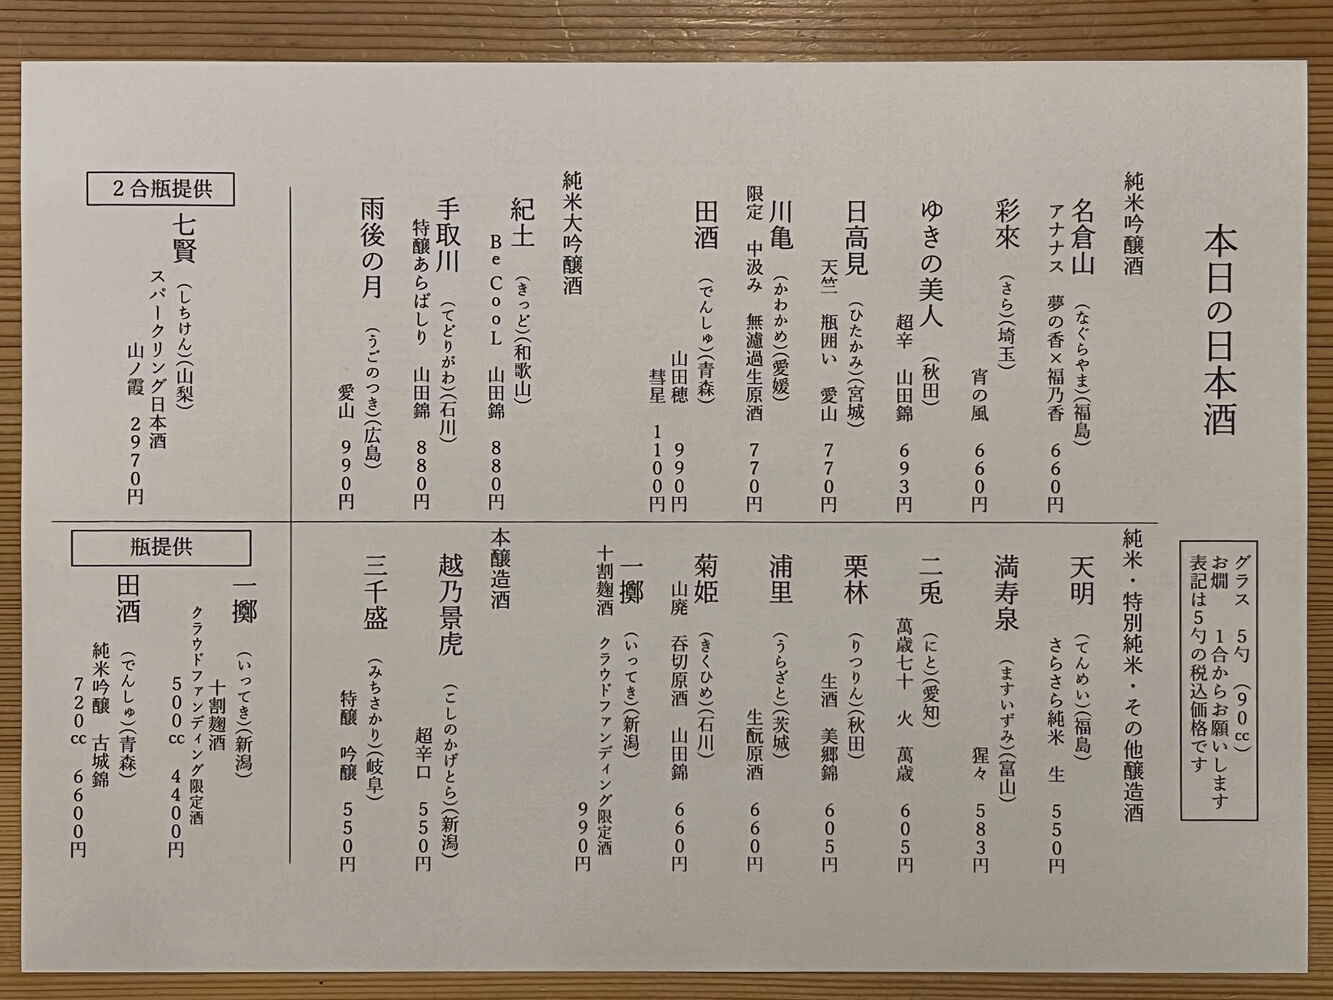 本日の日本酒
グラス　5勺　(90cc)
お燗　1合からお願いします
表記は5勺の税込価格です
純米吟醸酒
名倉山　(なぐらやま)(福島)
アナナス　夢の香×福乃香　660円
彩來　(さら)(埼玉)
宵の風　660円
ゆきの美人　(秋田)
超辛　山田錦　693円
日高見　(ひたかみ)(宮城)
天竺　瓶囲い　愛山　770円
川亀　(かわかめ)(愛媛)
限定　中汲み　無濾過生原酒　770円
田酒　(でんしゅ)(青森)
山田穂　990円
彗星　1100円
純米大吟醸酒
紀土　(きっど)(和歌山)
BeCooL　山田錦　880円
手取川　(てどりがわ)(石川)
特醸あらばしり　山田錦　880円
雨後の月　(うごのつき)(広島)
愛山　990円
純米・特別純米・その他醸造酒
天明　(てんめい)(福島)
さらさら純米　生　550円
満寿泉　(ますいずみ)(富山)
猩々　583円
二兎　(にと)(愛知)
萬歳七十　火　萬歳　605円
栗林　(りつりん)(秋田)
生酒　美郷錦　605円
浦里　(うらざと)(茨城)
生酛原酒　660円
菊姫　(きくひめ)(石川)
山廃　呑切原酒　山田錦　660円
一擲　(いってき)(新潟)
十割麹酒　クラウドファンディング限定酒
990円
本醸造酒
越乃景虎　(こしのかげとら)(新潟)
超辛口　550円
三千盛　(みちさかり)(岐阜)
特醸　吟醸　550円
2合瓶提供
七賢　(しちけん)(山梨)
スパークリング日本酒
山ノ霞　2970円
瓶提供
一擲　(いってき)(新潟)
十割麹酒
クラウドファンディング限定酒
500cc　4400円
田酒　(でんしゅ)(青森)
純米吟醸　古城錦
720cc　6600円